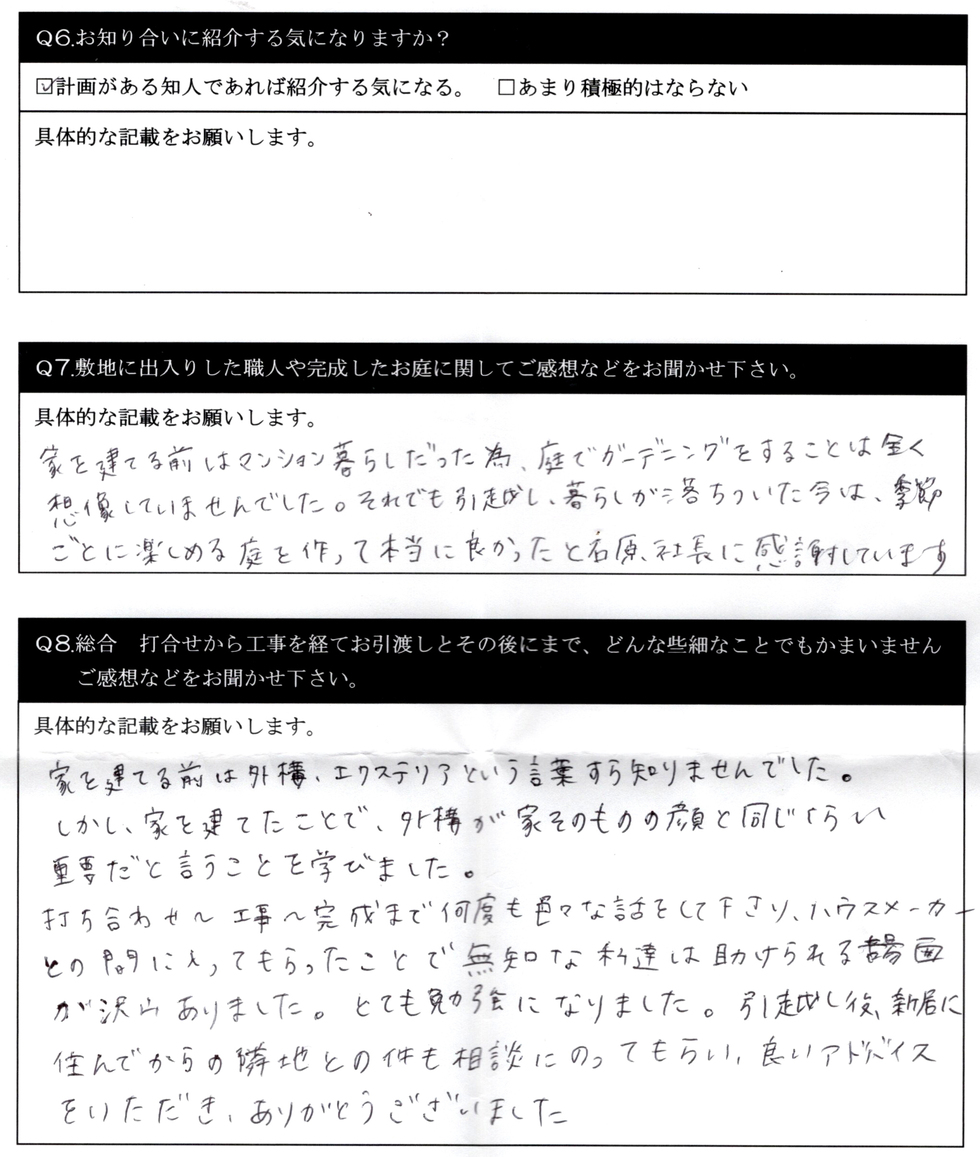 Q6.お知り合いに紹介する気になりますか？
☑計画がある知人であれば紹介する気になる。　□あまり積極的はならない
具体的な記載をお願いします。
Q7.敷地に出入りした職人や完成したお庭に関してご感想などをお聞かせ下さい。
具体的な記載をお願いします。
家を建てる前はマンション暮らしだった為、庭でガーデニングをすることは全く
想像していませんでした。それでも引越し、暮らしが落ちついた今は、季節
ごとに楽しめる庭を作って本当に良かったと石原社長に感謝しています
Q8.総合　打合せから工事を経てお引渡しとその後にまで、どんな些細なことでもかまいません
ご感想などをお聞かせ下さい。
具体的な記載をお願いします。
家を建てる前は外構、エクステリアという言葉すら知りませんでした。
しかし、家を建てたことで、外構が家そのものの顔と同じくらい
重要だと言うことを学びました。
打ち合わせ〜工事〜完成まで何度も色々な話をして下さり、ハウスメーカー
との間に入ってもらったことで無知な私達は助けられる場面
が沢山ありました。とても勉強になりました。引越し後、新居に
住んでからの隣地との件も相談にのってもらい、良いアドバイス
をいただき、ありがとうございました